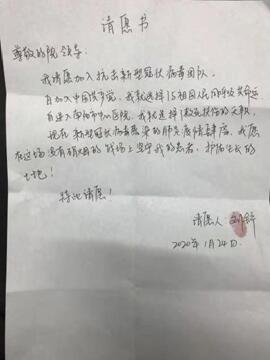 请愿书
尊敬的院领导:
我请愿加入抗击新型冠状病毒团队。
自加入中国共产党,我就选择了与祖国人民同呼吸共命运
自进入南阳市中心医院,我就选择了救死扶伤的天职,
现在新型冠状病毒感染的肺炎疫情肆虐,我愿
在这场没有硝烟的战场上坚守我的患者,护佑生长的
土地!
特此请愿!
请愿人
2020年1月24日.